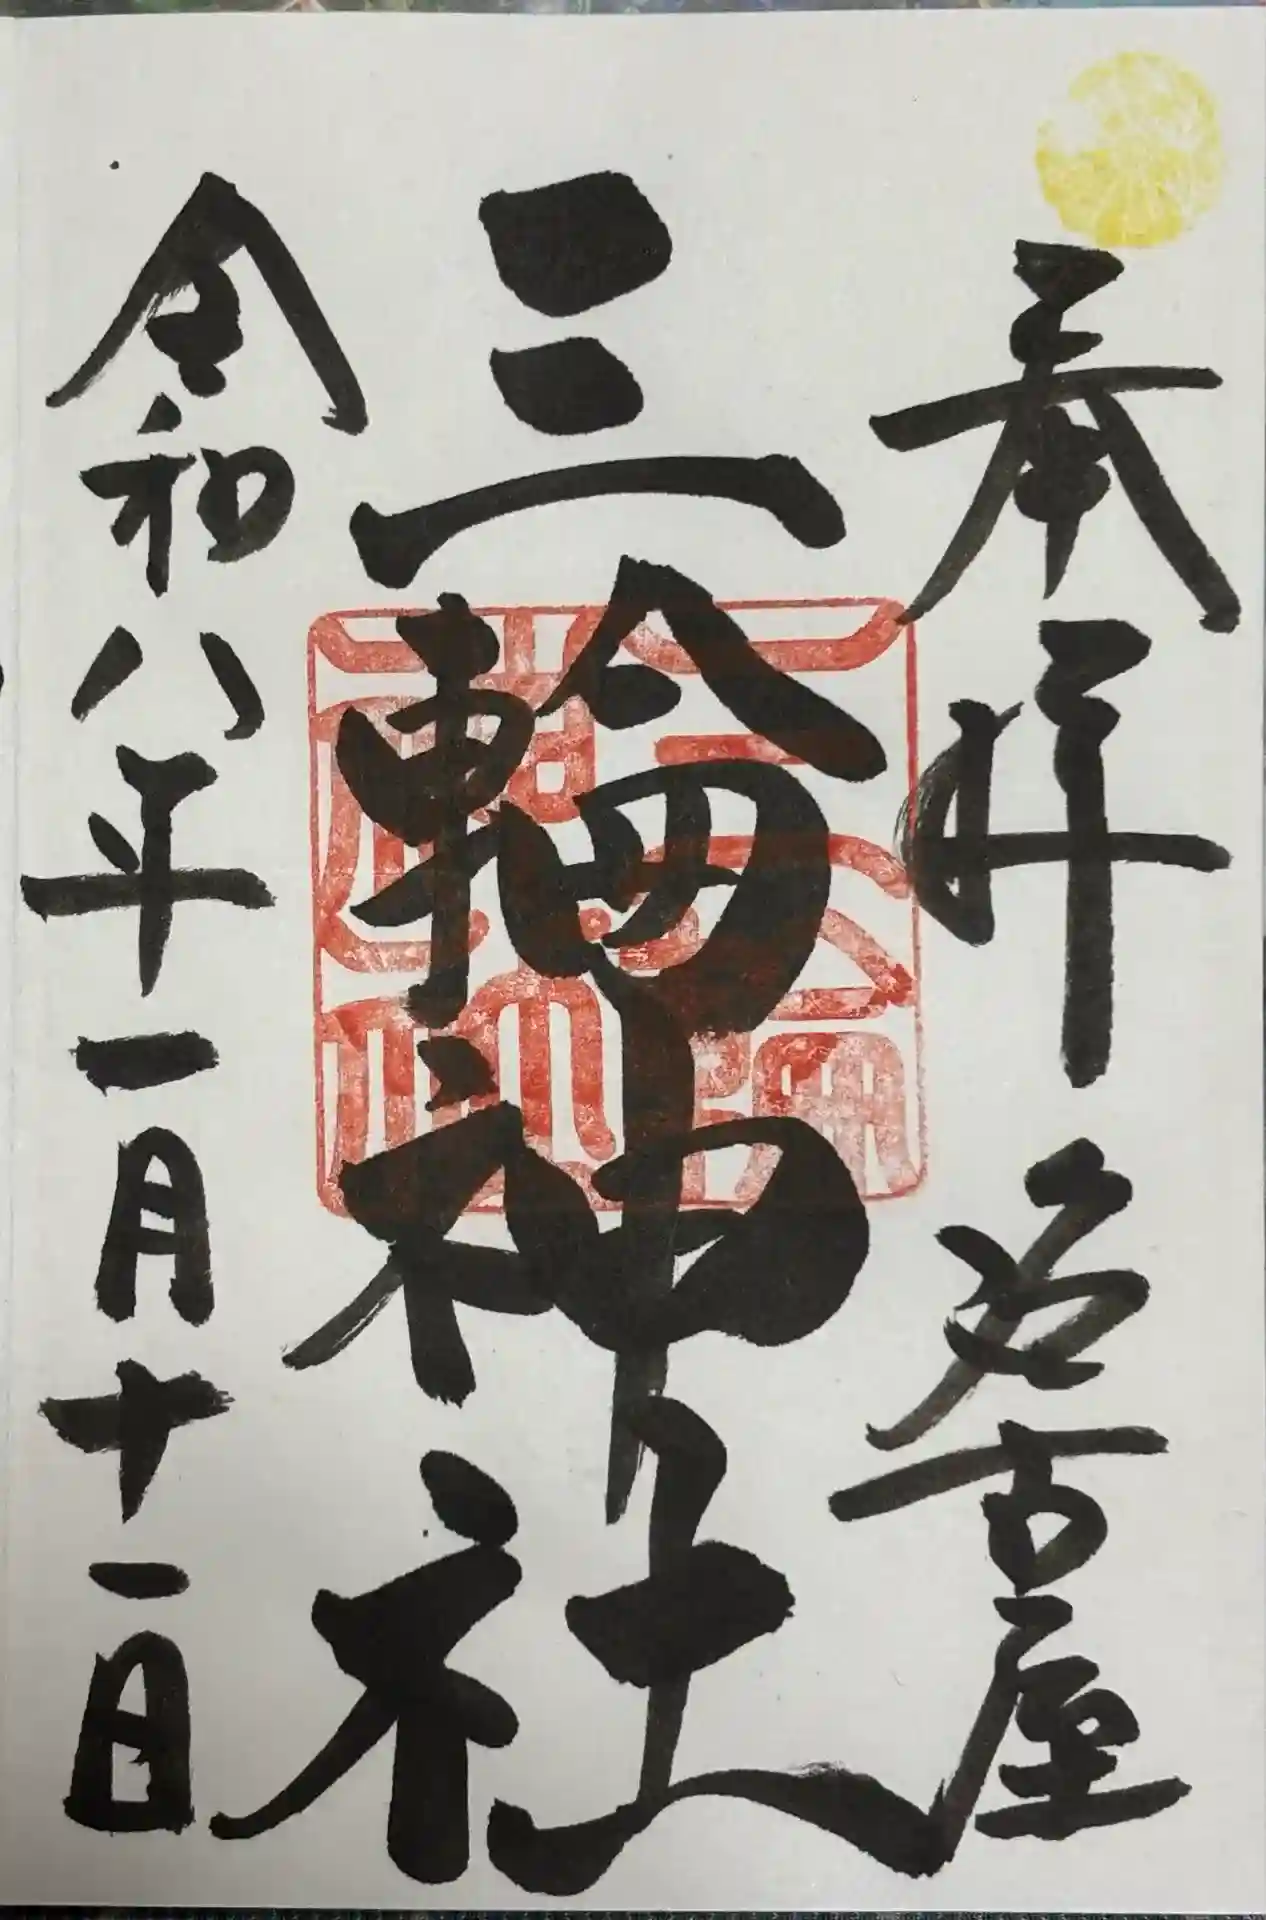 奉拝 名古屋
三輪神社
令和八年一月十一日